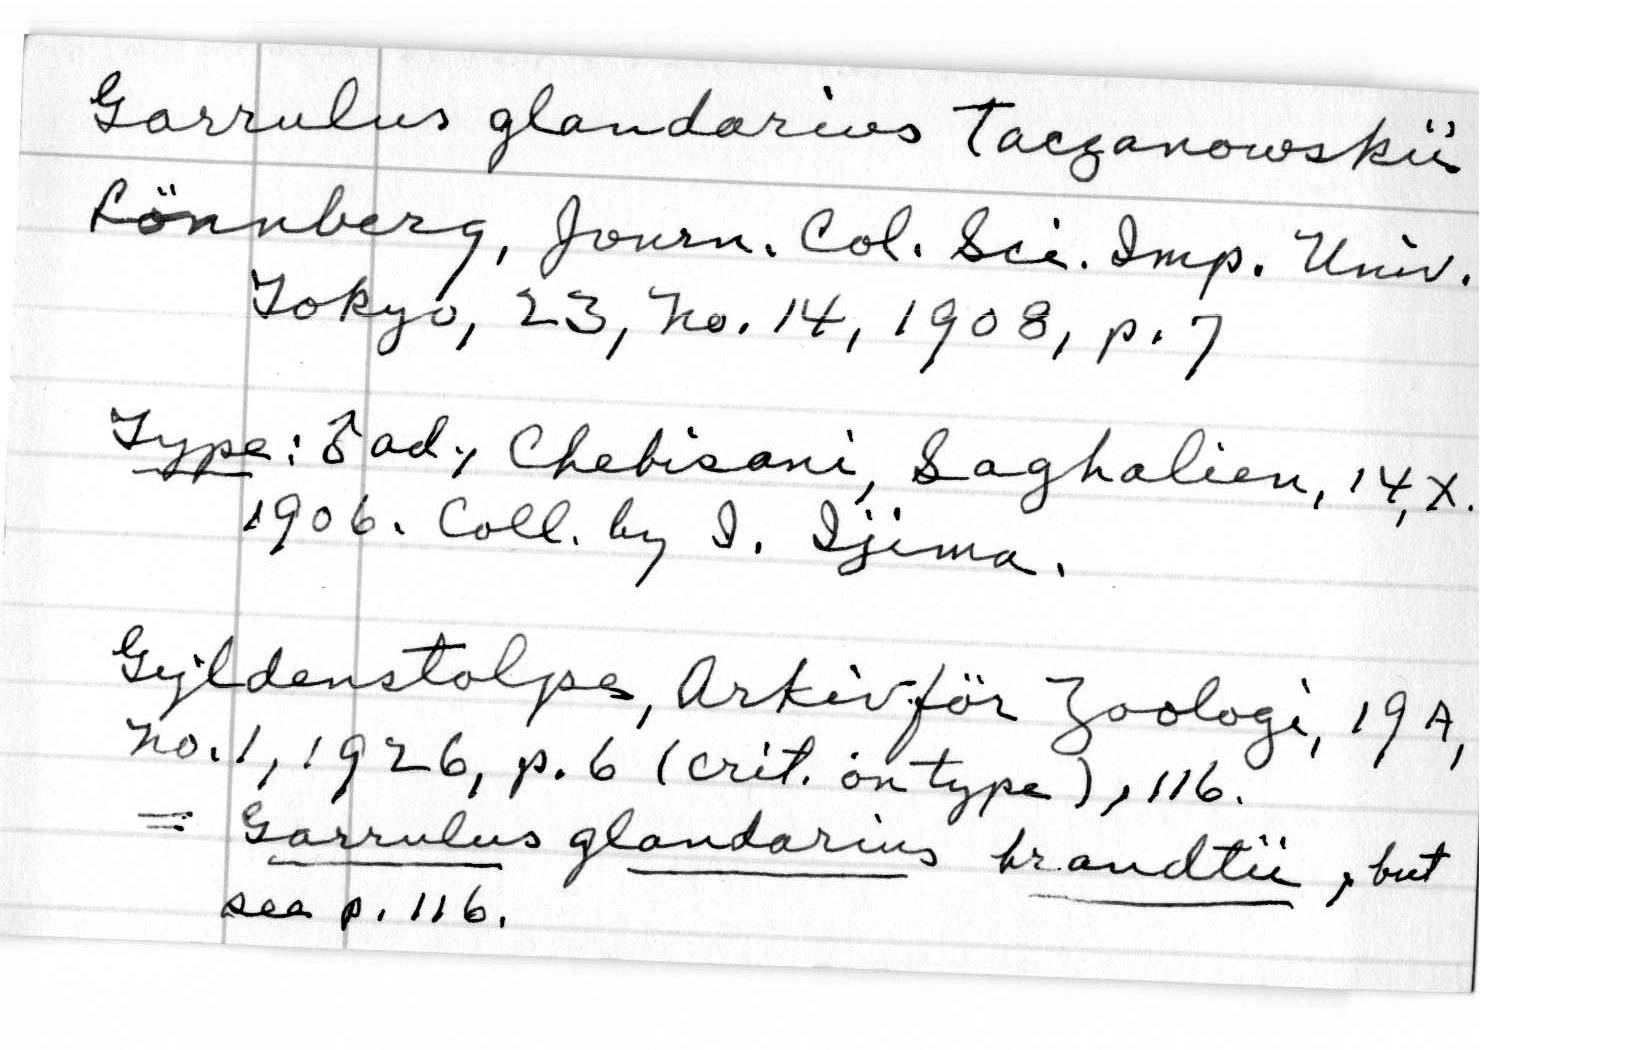 Garrulus glandarius Taczanowskii
Lönnberg, Journ. Col. Sci. Imp. Univ.
Tokyo, 23, No. 14, 1908, p. 7
Type: ♂ ad., Chebisani, Saghalien, 14, X.
1906. Coll. by I. Ijima.
Gyldenstolpe, Arkiv för Zoologi, 19A,
No. 1, 1926, p. 6 (crit. on type), 116.
= Garrulus glandarius brandtii, but
see p. 116.